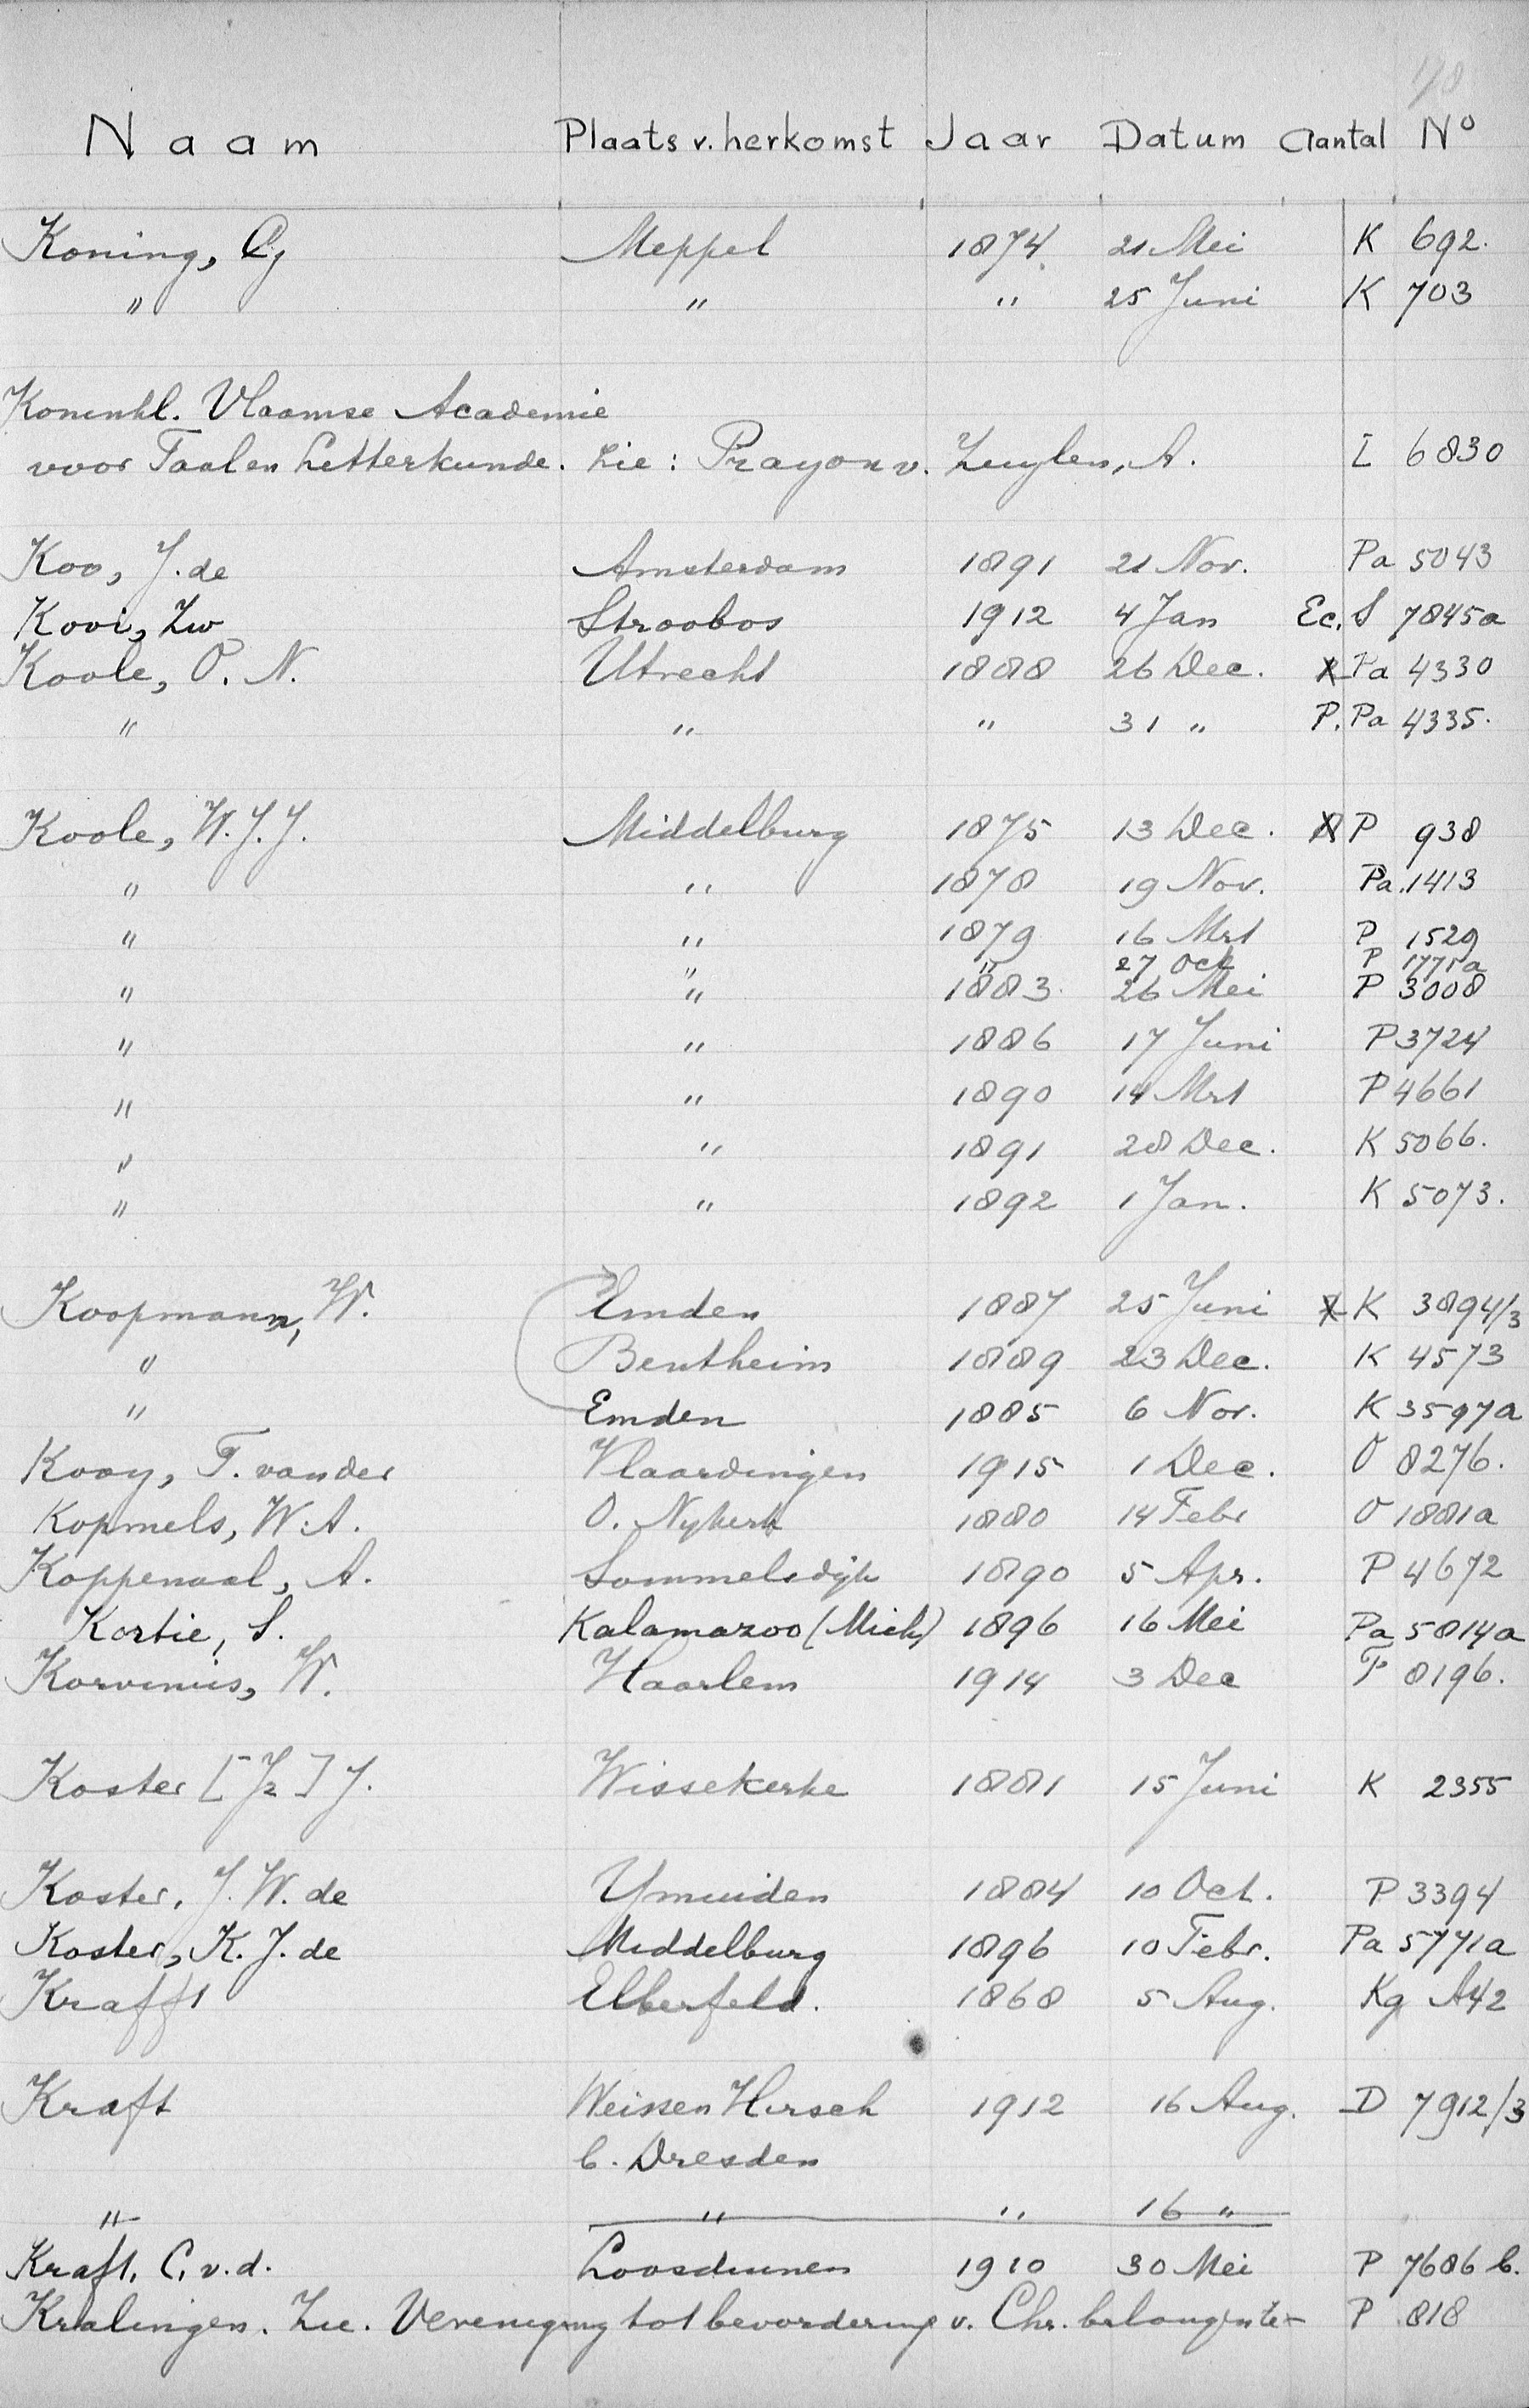 178
Naam Plaats v. herkomst Jaar Datum Aantal No
Koning, Cj Meppel 1874 21 Mei K 692.
" " " 25 Juni K 703
Koninkl. Vlaamse Academie
voor Taal en Letterkunde. Zie: Prayon v. Zuylen, A. L 6830
Koo, J. de Amsterdam 1891 21 Nov. Pa 5043
Kooi, Zw Stroobos 1912 4 Jan Ec. S 7845a
Koole, P. N. Utrecht 1888 26 Dec. Pa 4330
" " " 31 " P. Pa 4335.
Koole, W. J. J. Middelburg 1875 13 Dec. P 938
" " 1878 19 Nov. Pa. 1413
" " 1879 16 Mrt P 1529
" " 27 Oct P 1775a
" " 1883. 26 Mei P 3008
" " 1886 17 Juni P 3724
" " 1890 14 Mrt P 4661
" " 1891 28 Dec. K 5066.
" " 1892 1 Jan. K 5073.
Koopmann, W. Emden 1887 25 Juni K 3894/3
" Bentheim 1889 23 Dec. K 4573
" Emden 1885 6 Nov. K 3597a
Kooy, T. van der Vlaardingen 1915 1 Dec. O 8276.
Kopmels, W. A. O. Nykerk 1880 14 Febr O 1881a
Koppenaal, A. Sommelsdijk 1890 5 Apr. P 4672
Kortie, S. Kalamazoo (Mich) 1896 16 Mei Pa 5814a
Korvinus, W. Haarlem 1914 3 Dec P 8196.
Koster [Jz] J. Wissekerke 1881 15 Juni K 2355
Koster, J. W. de Ymuiden 1884 10 Oct. P 3394
Koster, K. J. de Middelburg 1896 10 Febr. Pa 5771a
Krafft Elberfeld. 1868 5 Aug. Kg A42
Kraft Weissen Hirsch 1912 16 Aug. D 7912/3
b. Dresden
" " " 16 "
Kraft, C. v. d. Loosduinen 1910 30 Mei P 7686 b.
Kralingen. Zie. Vereniging tot bevordering v. Chr. belangen te - P 818